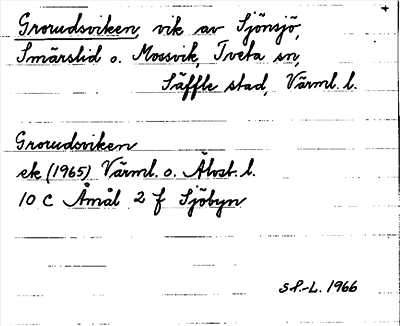 Grorudsviken, vik av Sjönsjö,
Smärslid o. Mossvik, Tveta sn,
Säffle stad, Värml. l.
Grorudsviken
ek (1965) Värml. o. Älvsb. l.
10 C Åmål 2 f Sjöbyn
S P.-L. 1966